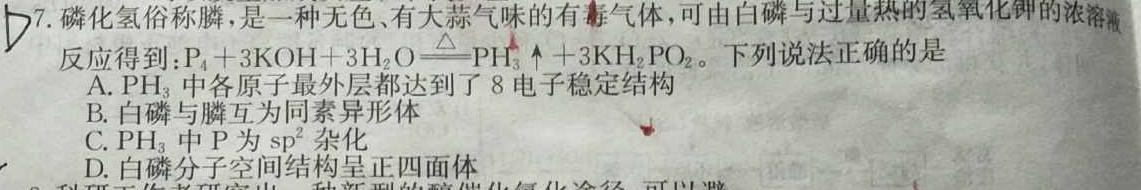 D7. 磷化氢俗称膦,是一种无色、有大蒜气味的有毒气体,可由白磷与过量热的氢氧化钾的浓溶液
反应得到:P₄+3KOH+3H₂O≜PH₃↑+3KH₂PO₂。下列说法正确的是
A. PH₃ 中各原子最外层都达到了 8 电子稳定结构
B. 白磷与膦互为同素异形体
C. PH₃ 中 P 为 sp² 杂化
D. 白磷分子空间结构呈正四面体